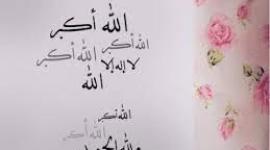 الله أكبر
الله أكبر
الله أكبر
لا إله إلا
الله
الله أكبر
الله أكبر
ولله الحمد